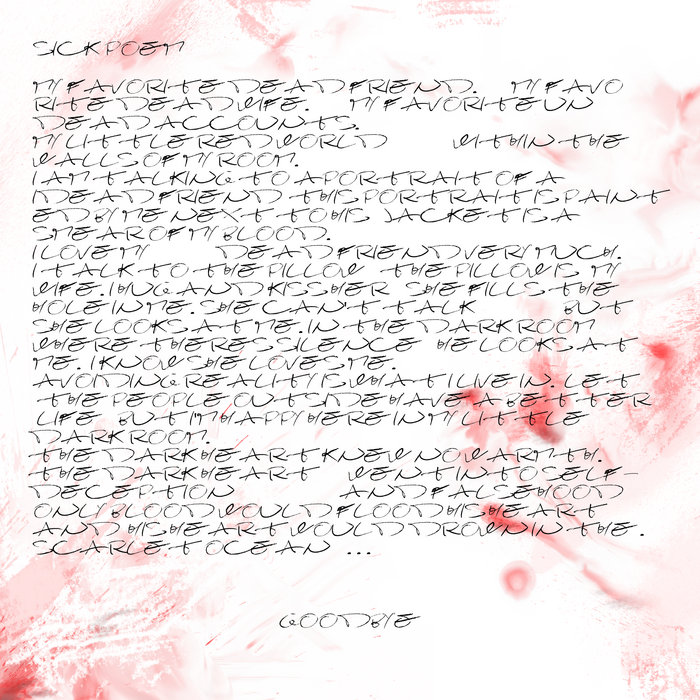 SICK POEM
MY FAVORITE DEAD FRIEND. MY FAVO
RITE DEAD WIFE. MY FAVORITE UN
DEAD ACCOUNTS.
MY LITTLE RED WORLD WITHIN THE
WALLS OF MY ROOM.
I AM TALKING TO A PORTRAIT OF A
DEAD FRIEND THIS PORTRAIT IS PAINT
ED BY ME NEXT TO HIS JACKET IS A
SMEAR OF MY BLOOD.
I LOVE MY DEAD FRIEND VERY MUCH.
I TALK TO THE PILLOW THE PILLOW IS MY
WIFE. I HUG AND KISS HER SHE FILLS THE
HOLE IN ME. SHE CAN'T TALK BUT
SHE LOOKS AT ME. IN THE DARK ROOM
WHERE THERES SILENCE HE LOOKS AT
ME. I KNOW SHE LOVES ME.
AVOIDING REALITY IS WHAT I LIVE IN. LET
THE PEOPLE OUTSIDE HAVE A BETTER
LIFE BUT IM HAPPY HERE IN MY LITTLE
DARK ROOM.
THE DARK HEART KNEW NO WARMTH.
THE DARK HEART WENT INTO SELF-
DECEPTION AND FALSEHOOD
ONLY BLOOD WOULD FLOOD HIS HEART
AND HIS HEART WOULD DROWN IN THE .
SCARLET OCEAN ...
GOODBIE